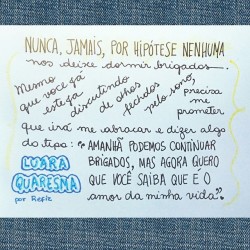 NUNCA, JAMAIS, POR HIPÓTESE NENHUMA
nos deixe dormir brigados.
Mesmo
que você já
esteja
discutindo
de olhos
fechados
pelo sono,
precisa
me
prometer
que irá me abraçar e dizer algo
do tipo: "AMANHÃ PODEMOS CONTINUAR
BRIGADOS, MAS AGORA QUERO
QUE VOCÊ SAIBA QUE É O
amor da minha vida".
LUARA
QUARESMA
por Refle